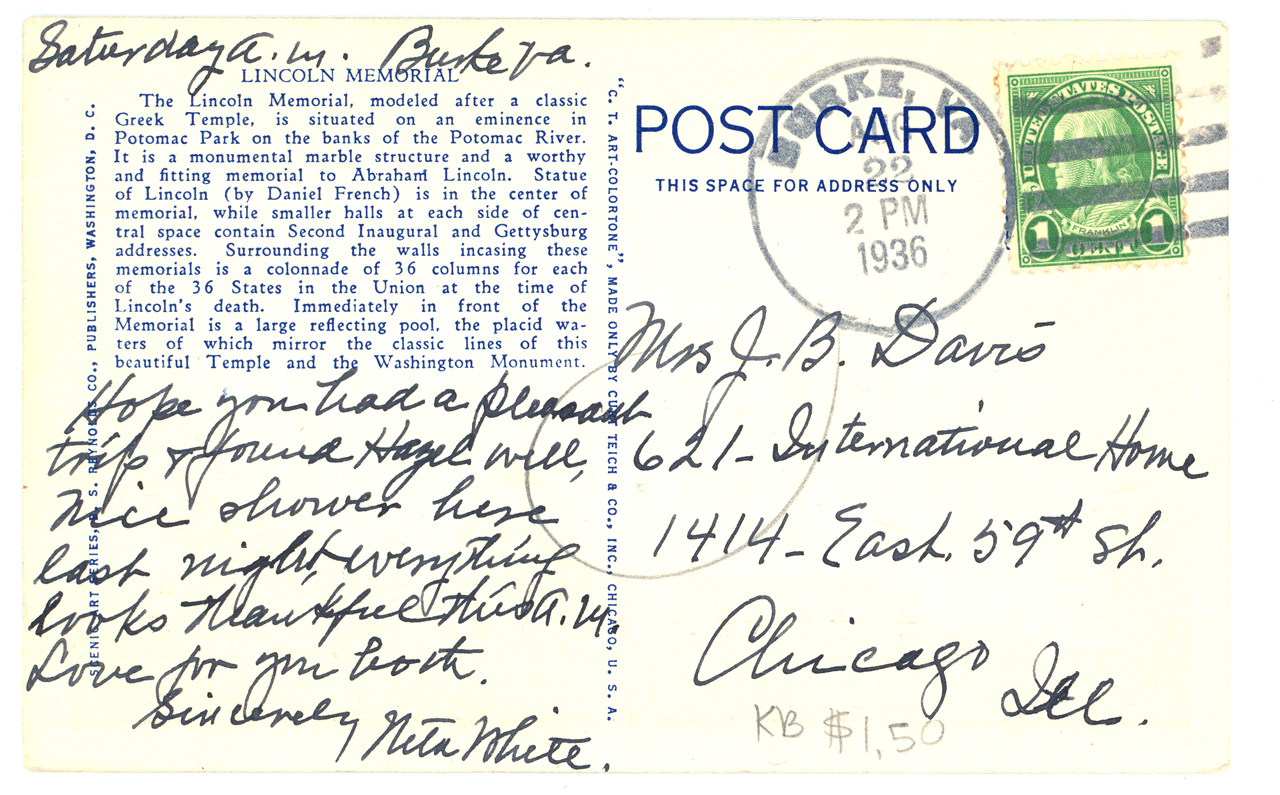 Saturday A.M. Burke Va.
LINCOLN MEMORIAL
The Lincoln Memorial, modeled after a classic
Greek Temple, is situated on an eminence in
Potomac Park on the banks of the Potomac River.
It is a monumental marble structure and a worthy
and fitting memorial to Abraham Lincoln. Statue
of Lincoln (by Daniel French) is in the center of
memorial, while smaller halls at each side of cen-
tral space contain Second Inaugural and Gettysburg
addresses. Surrounding the walls incasing these
memorials is a colonnade of 36 columns for each
of the 36 States in the Union at the time of
Lincoln's death. Immediately in front of the
Memorial is a large reflecting pool, the placid wa-
ters of which mirror the classic lines of this
beautiful Temple and the Washington Monument.
Hope you had a pleasant
trip & found Hazel well,
Nice shower here
last night, everything
looks thankful this A.M.
Love for you both.
Sincerely
Neta White.
SCENIC ART SERIES, S. REYNOLDS CO., PUBLISHERS, WASHINGTON, D. C.
"C. T. ART-COLORTONE", MADE ONLY BY CURT TEICH & CO., INC., CHICAGO, U. S. A.
POST CARD
THIS SPACE FOR ADDRESS ONLY
BURKE, VA.
AUG
22
2 PM
1936
UNITED STATES POSTAGE
FRANKLIN
1 CENT 1
Mrs J. B. Davis
621- International Home
1414- East. 59th St.
Chicago
Ill.
KB $1.50